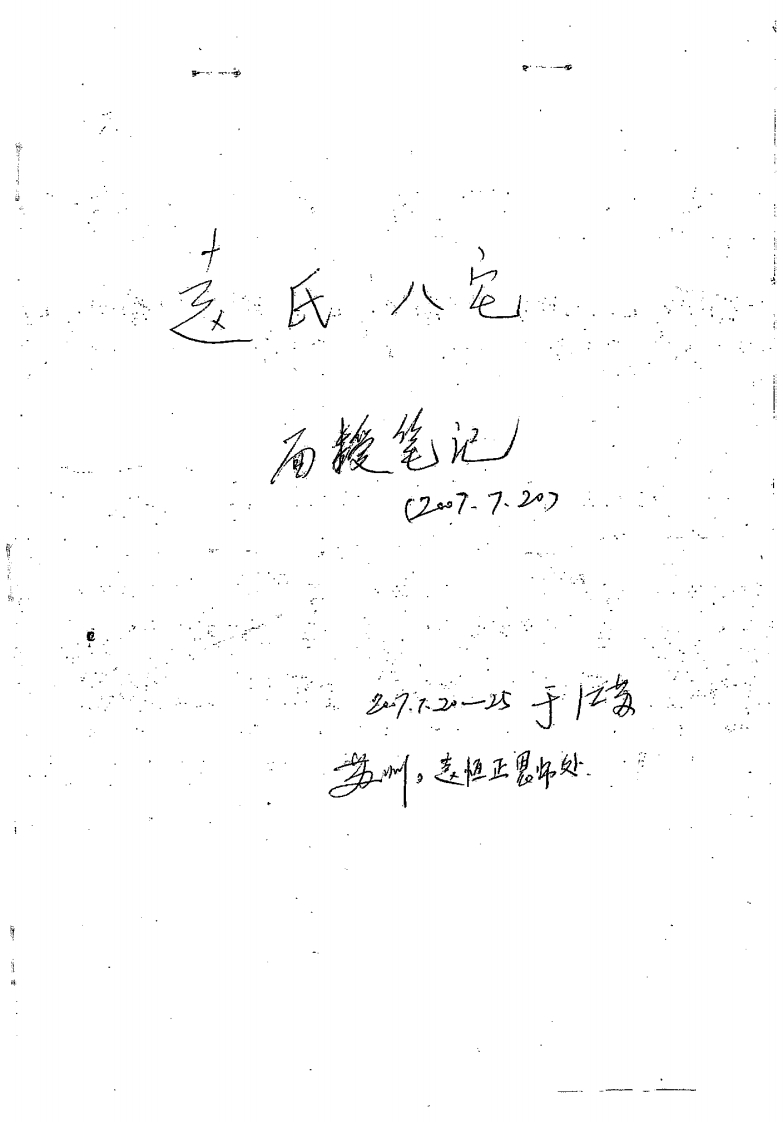 赵氏八宅
面授笔记
(2007.7.20)
2007.7.20—25 于江苏
苏州。赵恒正恩师处.